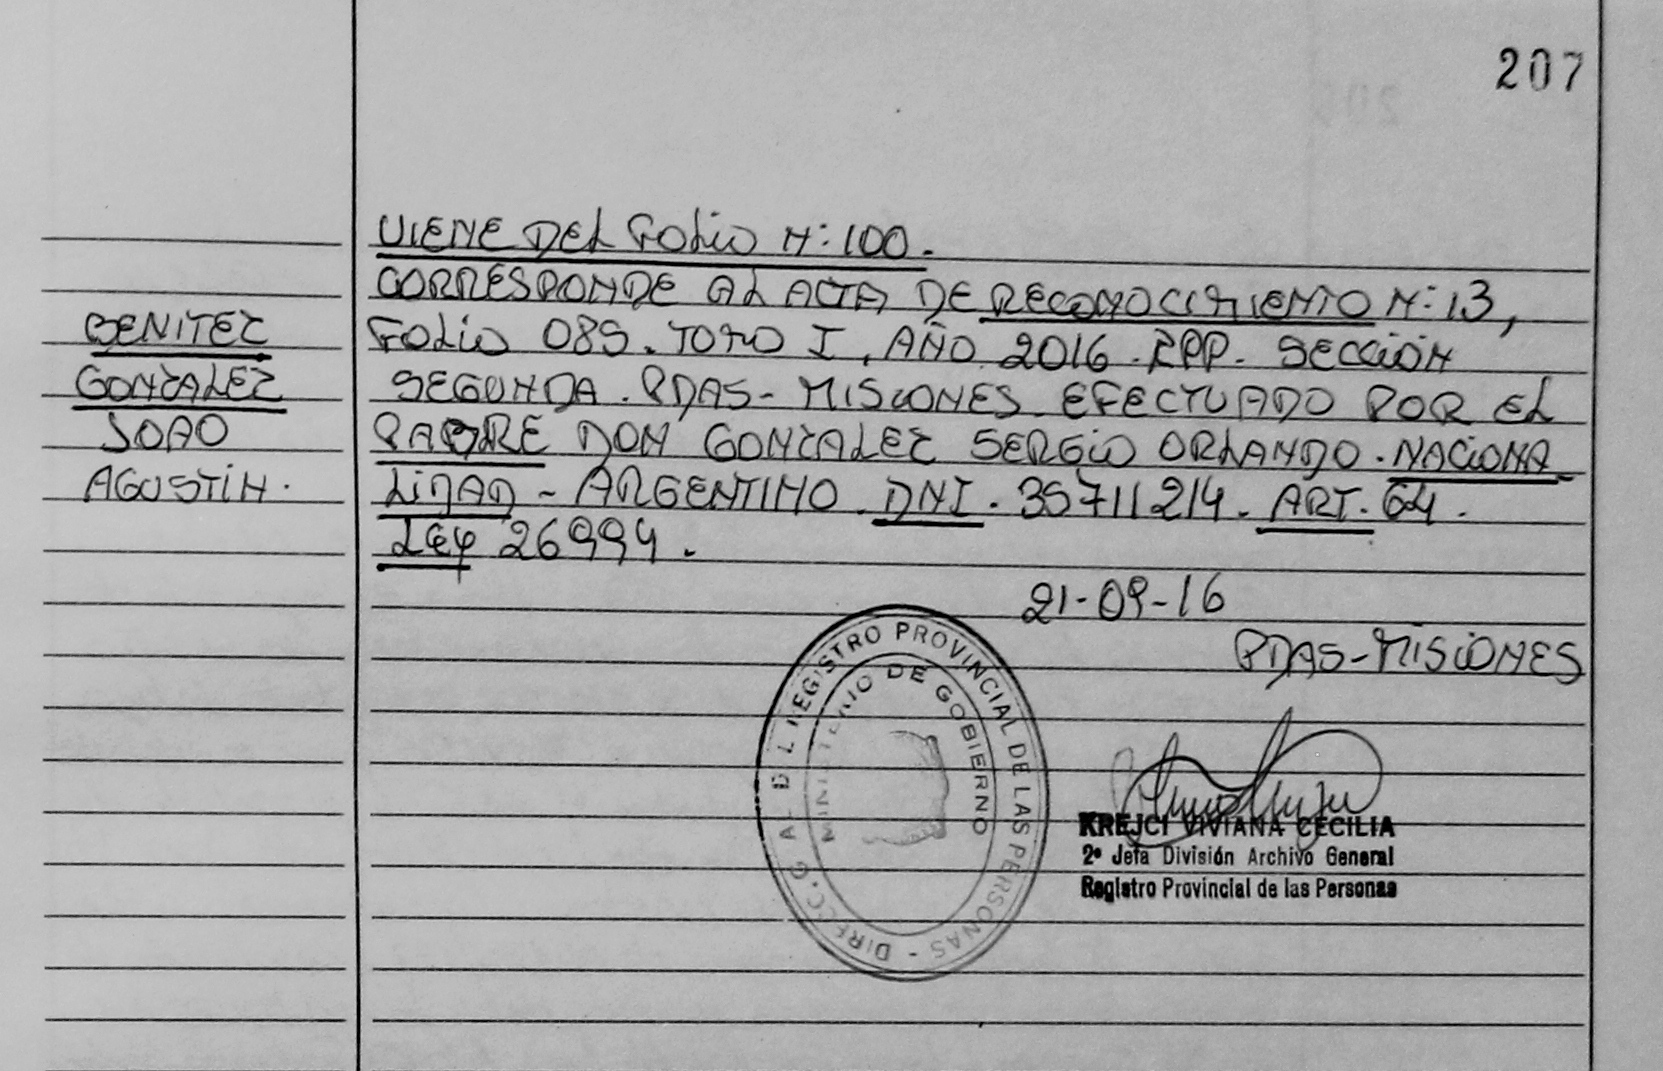 207
VIENE DEL FOLIO N: 100.
CORRESPONDE AL ACTA DE RECONOCIMIENTO N: 13,
BENITEZ
FOLIO 089. TOMO I, AÑO 2016. RPP. SECCIÓN
GONZALEZ
SEGUNDA. PDAS- MISIONES. EFECTUADO POR EL
JOAO
PADRE DON GONZALEZ SERGIO ORLANDO. NACIONA
AGUSTIN.
LIDAD - ARGENTINO. DNI. 35711214. ART. 64.
LEY 26994.
21-09-16
PDAS-MISIONES
DIRECC. GRAL. DEL REGISTRO PROVINCIAL DE LAS PERSONAS -
MINISTERIO DE GOBIERNO
KREJCI VIVIANA CECILIA
2º Jefa División Archivo General
Registro Provincial de las Personas